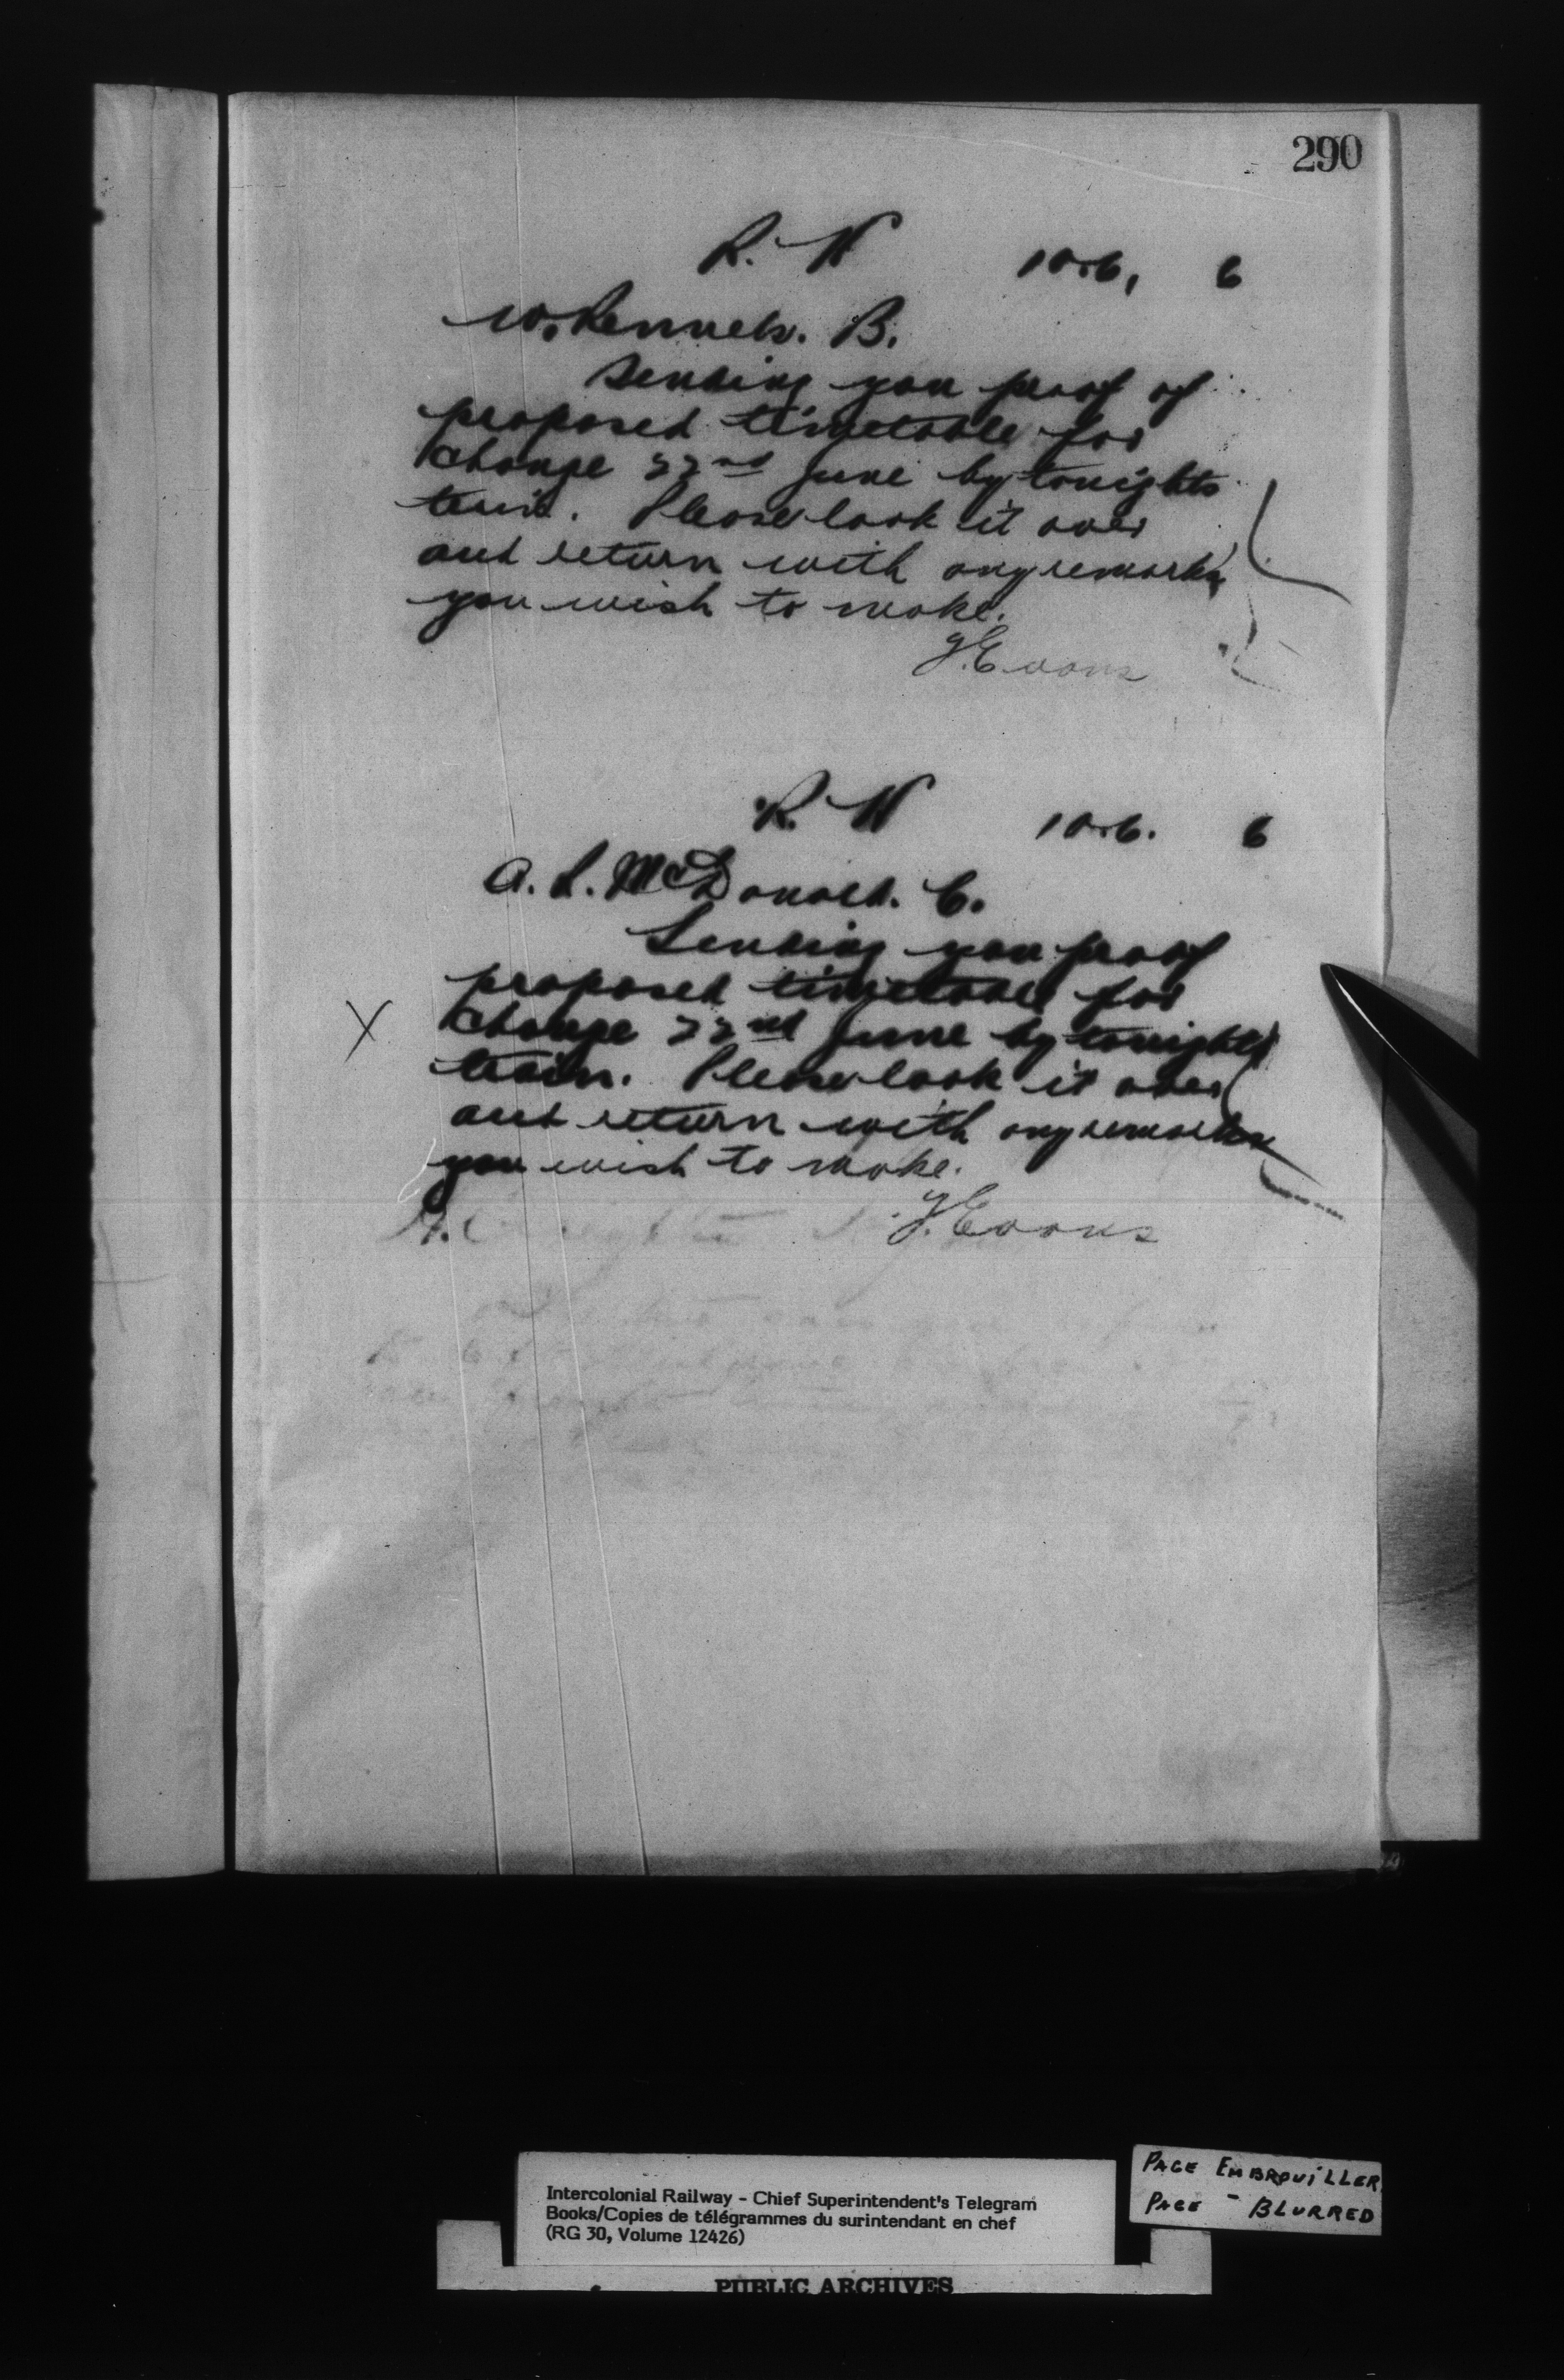 290
R. W 10.6, 6
W. Rennels. B.
Sending you proof of
proposed timetable for
change 22nd June by tonights
train. Please look it over
and return with any remarks
you wish to make.
J. Evans
R. W 10.6. 6
A. R. McDonald. C.
Sending you proof
proposed timetable for
change 22nd June by tonights
X
train. Please look it over
and return with any remarks
you wish to make.
J. Evans
Intercolonial Railway - Chief Superintendent's Telegram
Books/Copies de télégrammes du surintendant en chef
(RG 30, Volume 12426)
PAGE EMBROUILLER
PAGE - BLURRED
PUBLIC ARCHIVES